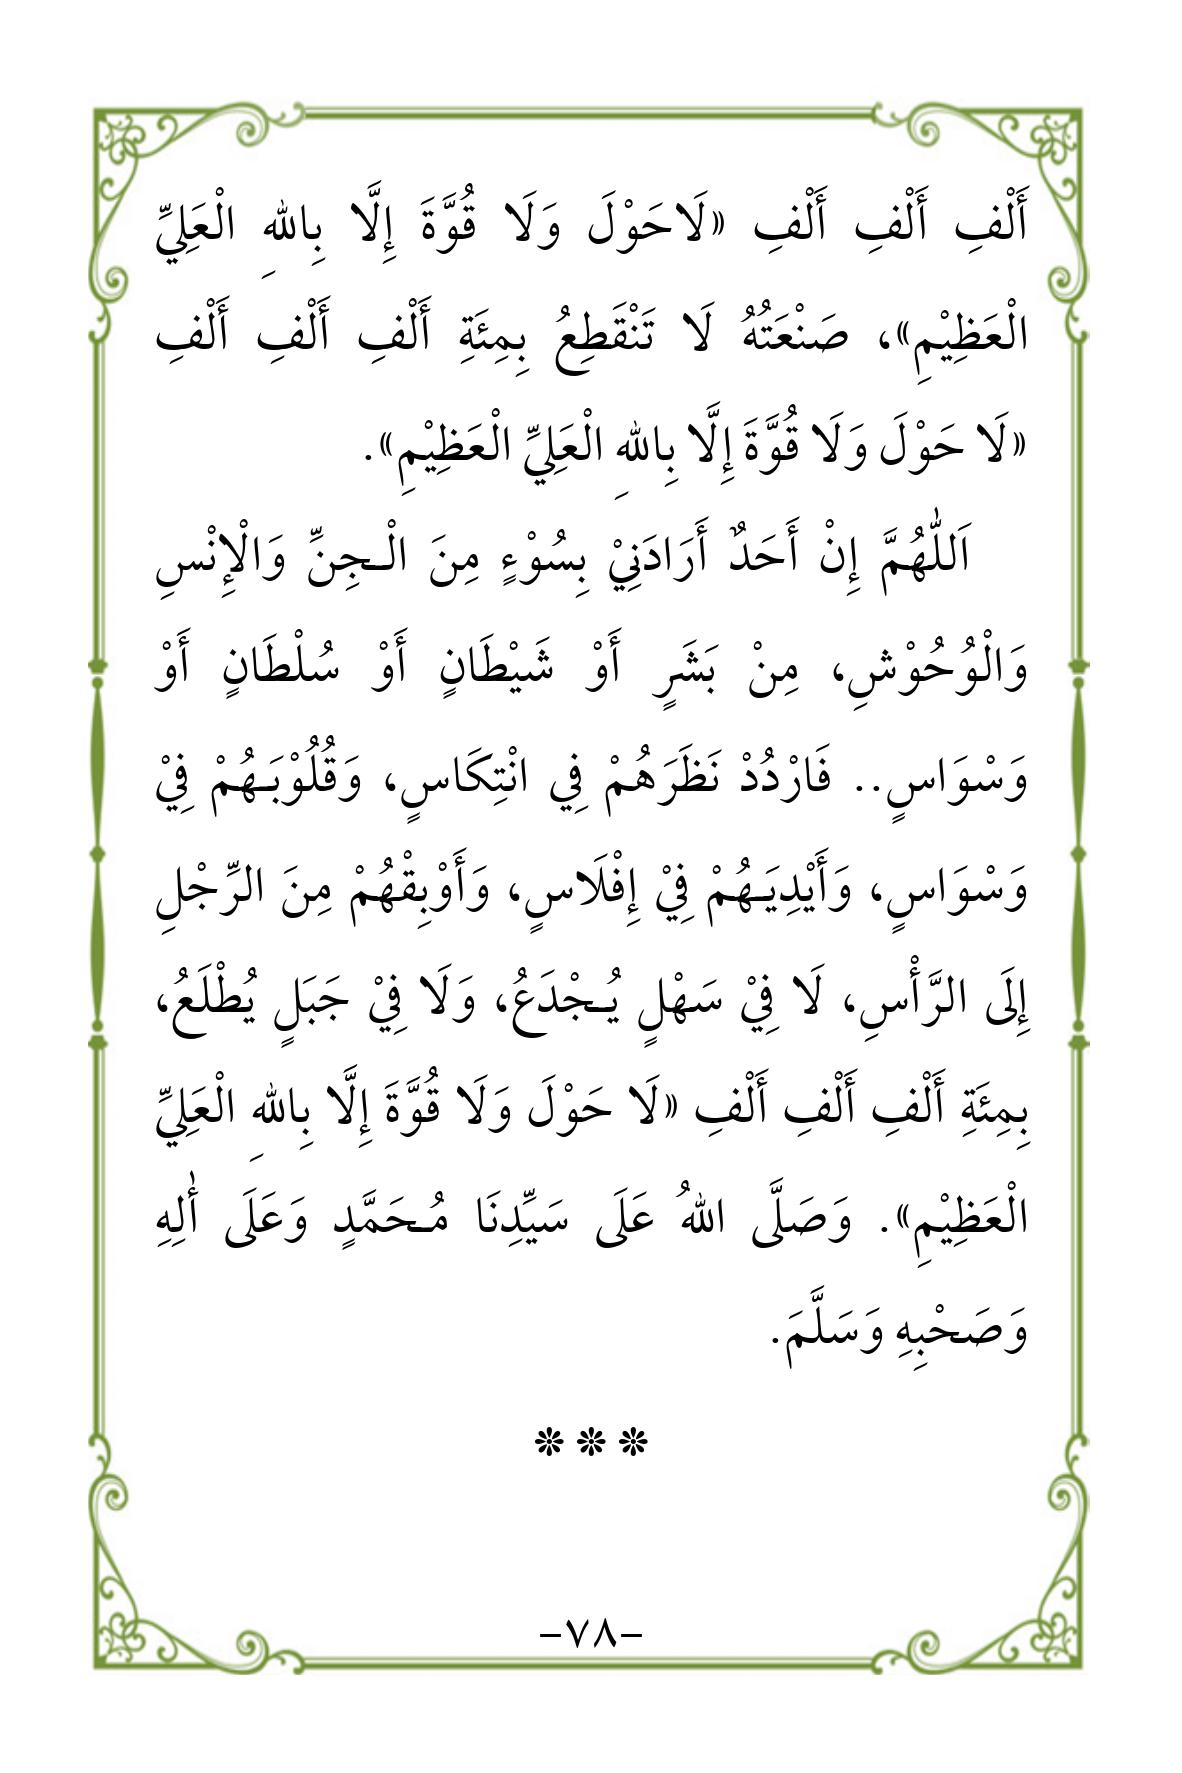 أَلْفِ أَلْفِ أَلْفِ «لَاحَوْلَ وَلَا قُوَّةَ إِلَّا بِاللهِ الْعَلِيِّ
الْعَظِيْمِ»، صَنْعَتُهُ لَا تَنْقَطِعُ بِمِئَةِ أَلْفِ أَلْفِ أَلْفِ
«لَا حَوْلَ وَلَا قُوَّةَ إِلَّا بِاللهِ الْعَلِيِّ الْعَظِيْمِ».
اَللّٰهُمَّ إِنْ أَحَدٌ أَرَادَنِيْ بِسُوْءٍ مِنَ الْـجِنِّ وَالْإِنْسِ
وَالْوُحُوْشِ، مِنْ بَشَرٍ أَوْ شَيْطَانٍ أَوْ سُلْطَانٍ أَوْ
وَسْوَاسٍ.. فَارْدُدْ نَظَرَهُمْ فِي انْتِكَاسٍ، وَقُلُوْبَـهُمْ فِيْ
وَسْوَاسٍ، وَأَيْدِيَـهُمْ فِيْ إِفْلَاسٍ، وَأَوْبِقْهُمْ مِنَ الرِّجْلِ
إِلَى الرَّأْسِ، لَا فِيْ سَهْلٍ يُـجْدَعُ، وَلَا فِيْ جَبَلٍ يُطْلَعُ،
بِمِئَةِ أَلْفِ أَلْفِ أَلْفِ «لَا حَوْلَ وَلَا قُوَّةَ إِلَّا بِاللهِ الْعَلِيِّ
الْعَظِيْمِ». وَصَلَّى اللهُ عَلَى سَيِّدِنَا مُـحَمَّدٍ وَعَلَى أٰلِهِ
وَصَحْبِهِ وَسَلَّمَ.
❊ ❊ ❊
-٧٨-